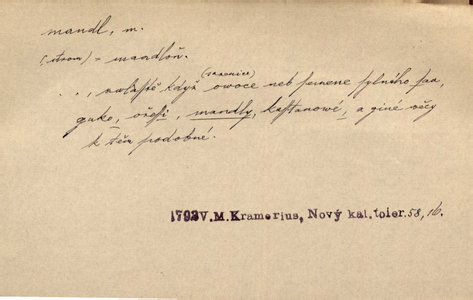 mandl, m.
(strom) = mandloň.
..., zvláště když (sazenice) owoce neb semene sylného sau,
gako, ořessi, mandly, kasstanowé, a giné wěcy
k těm podobné.
1793 V.M.Kramerius, Nový kal.toler. 58, 16.